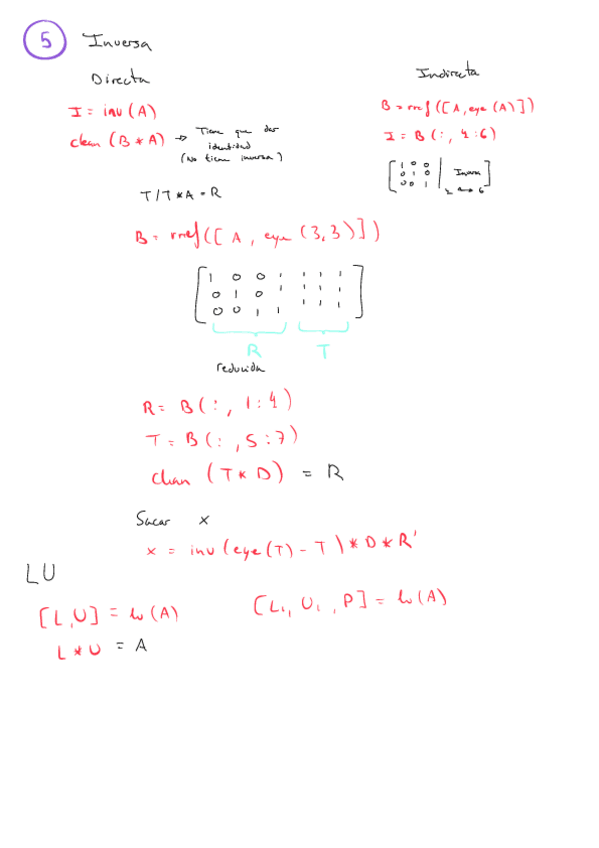 5 Inversa
Directa
I = inv(A)
clean (B * A) → Tiene que dar
identidad
(No tiene inversa)
Indirecta
B = rref([A, eye(A)])
I = B(:, 4:6)
1 0 0
0 1 0 Inversa
0 0 1
T/T*A = R
B = rref([A, eye(3,3)])
1 0 0 1 1 1 1
0 1 0 1 1 1 1
0 0 1 1 1 1 1
R T
reducida
R = B(:, 1:4)
T = B(:, 5:7)
clean (T * D) = R
Sacar x
x = inv(eye(T) - T) * D * R'
LU
[L, U] = lu(A)
L * U = A
[L1, U1, P] = lu(A)